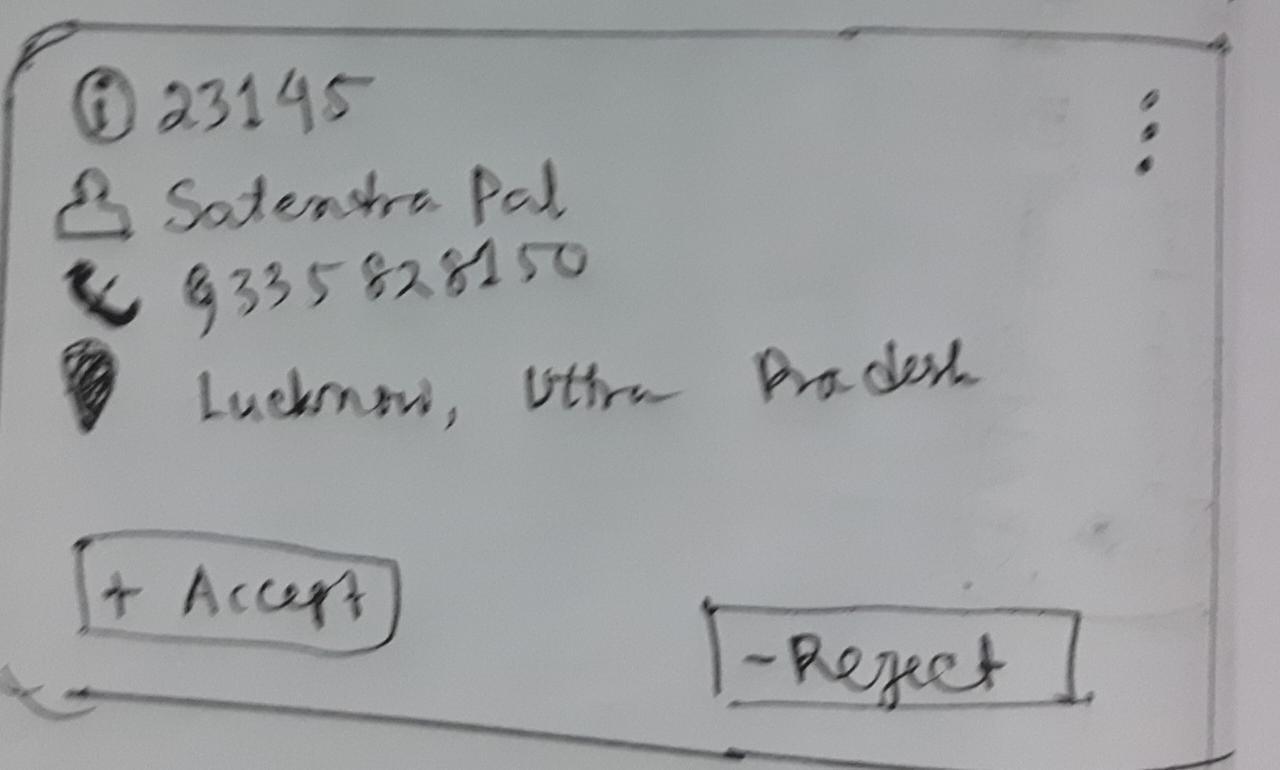 i 23145
Satentra Pal
9335828150
Lucknow, Uttra Pradesh
+ Accept
- Reject